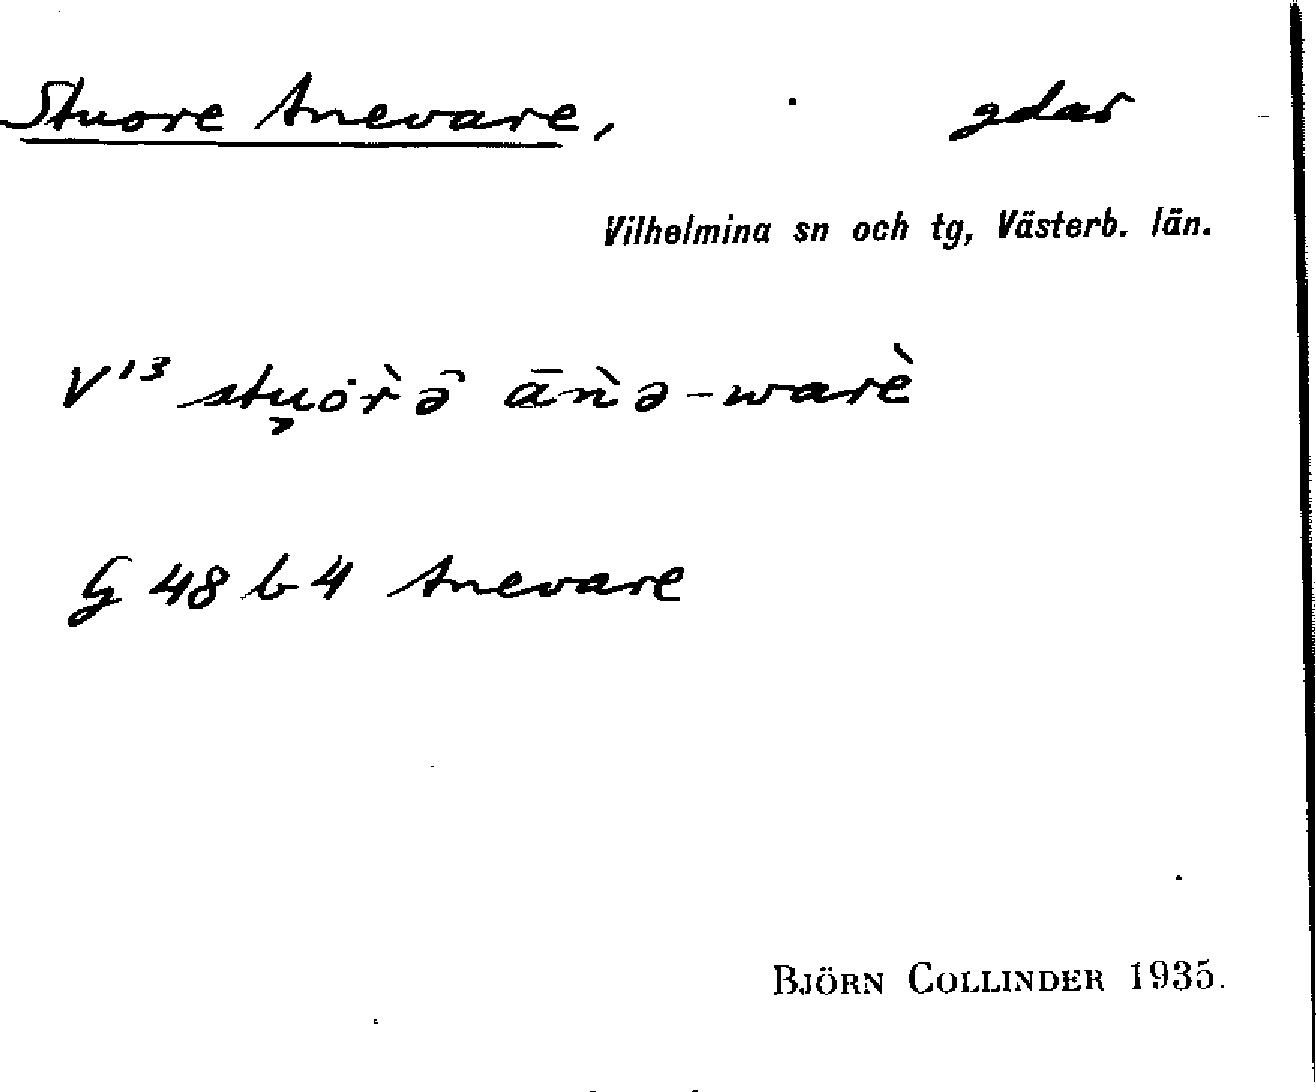 Stuore Anevare, gdas
Vilhelmina sn och tg, Västerb. län.
V¹³ stu̯ȯr̀ə̂ āǹə-warè
G 48 b 4 Anevare
BJÖRN COLLINDER 1935.